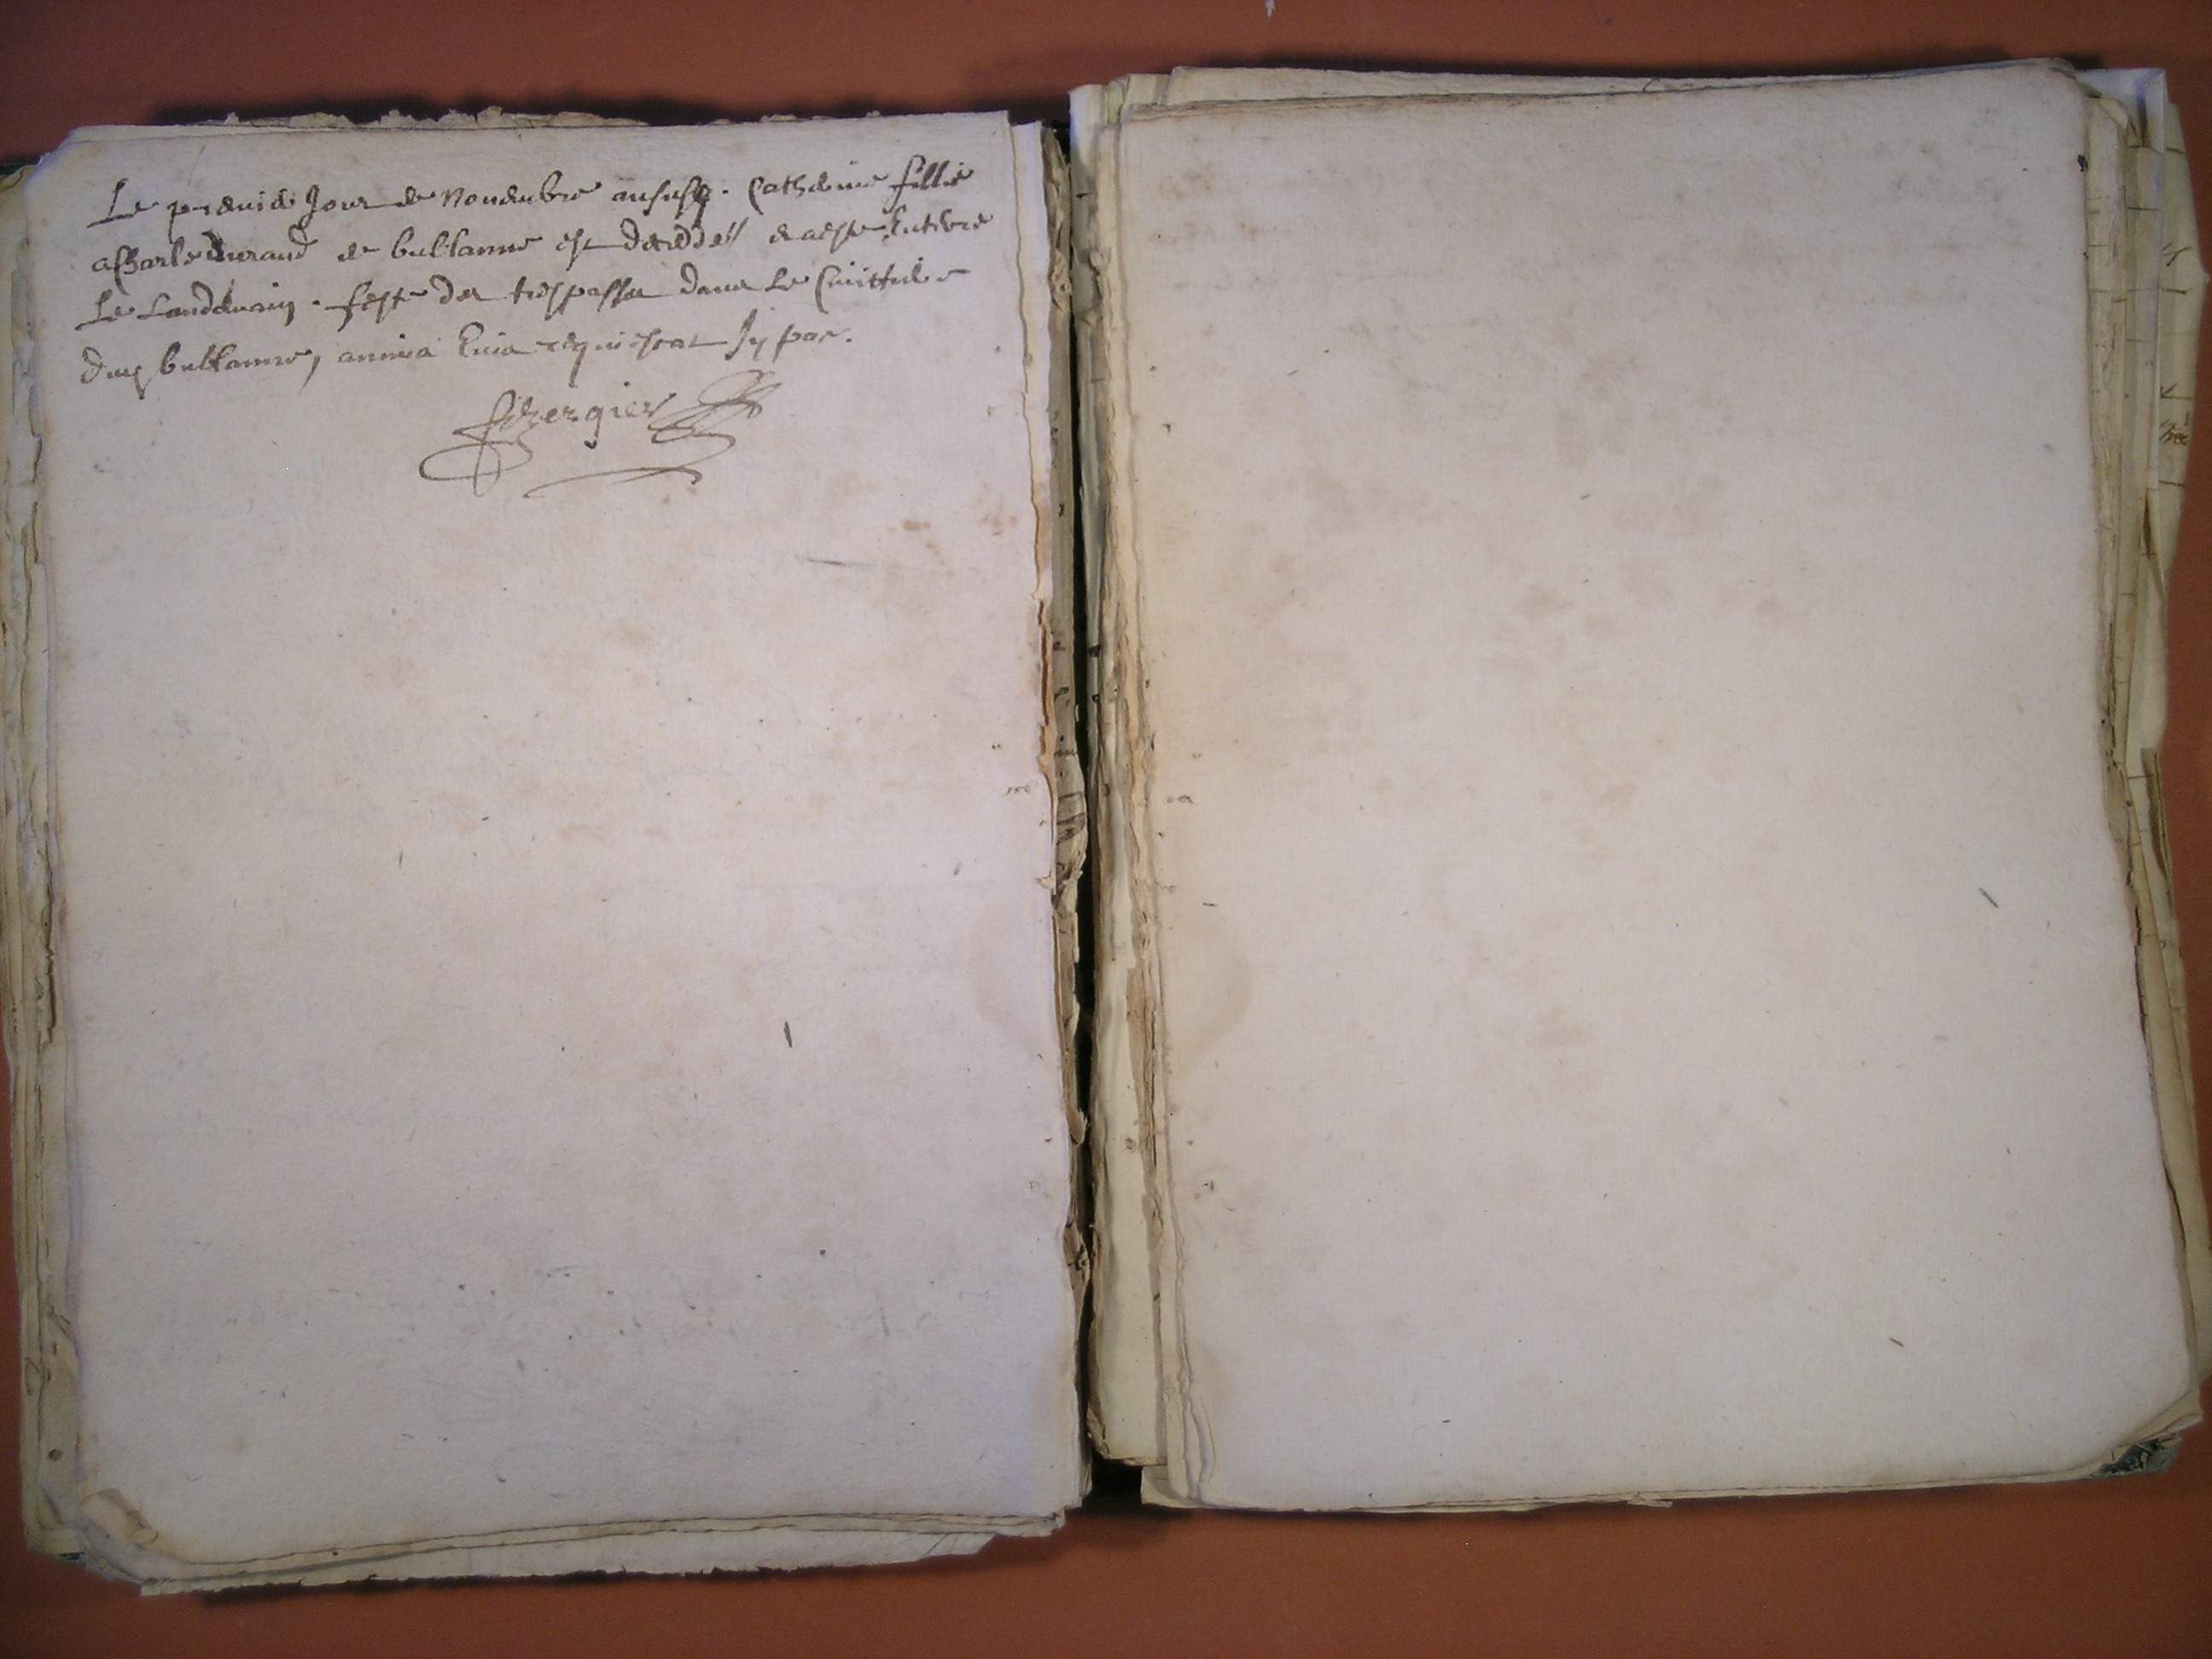 Le premier Jour de Novembre aususd. Catherine fillie
a Charle durand de bullanne est decedée et a este Enterre
Le Landemain. feste des trespasses dans Le Cimittiere
dud bullanne, anima Euis requiescat Jn pac.
Vergier